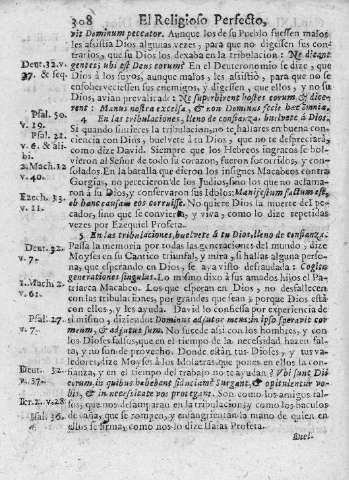 308 El Religioso Perfecto,
vit Dominum peccator. Aunque los de su Pueblo fuessen malos
les assistia Dios algunas vezes, para que no digessen sus con-
Deut. 32. v. trarios, que su Dios los dexaba en la tribulacion: Ne dicant
27. & seq. gentes; ubi est Deus eorum? En el Deuteronomio se dize, que
Dios à los suyos, aunque malos, les assistiò, para que no se
ensobervecies­sen sus enemigos, y digessen, que ellos, y no su
Dios, avian prevalecido: Ne superbirent hostes eorum, & dice-
rent: Manus nostra excelsa, & non Dominus fecit hæc omnia.
Psal. 50. 4 En las tribulaciones, lleno de confianza, buelvete à Dios.
v. 19. Si quando sintieres la tribulacion, no te hallares en buena con-
Psal. 21. ciencia con Dios, buelvete à tu Dios, que no te despreciarà,
v. 6. & ali- como dize David. Siempre que los Hebreos ingratos se bol-
bi. vieron al Señor de todo su corazon, fueron socorridos, y con-
2. Mach. 12 solados. En la batalla que dieron los insignes Macabeos contra
v. 40. Gorgias, no perecieron de los Judios, sino los que no aclama-
ron à su Dios, y conservaron sus Idolos; Manifestum factum est,
Ezech. 33. ob hanc causam eos corruisse. No quiere Dios la muerte del pe-
v. 11. cador, sino que se convierta, y viva, como lo dize repetidas
vezes por Ezequiel Profeta.
Deut. 32. 5. En las tribulaciones, buelvete à tu Dios, lleno de confianza.
v. 7. Passa la memoria por todas las generaciones del mundo, dize
Moyses en su Cantico triunfal, y mira, si hallas alguna perso-
na, que esperando en Dios, se aya visto defraudada: Cogita
generationes singulas. Lo mismo dixo à sus amados hijos el Pa-
2. Mach. 2. triarca Macabeo. Los que esperan en Dios, no desfallecen
v. 61. con las tribulaciones, por grandes que sean; porque Dios està
con ellos, y les ayuda. David lo confiessa por experiencia de
Psal. 27. el mismo, diziendo: Dominus adjutor meus; in ipso speravit cor
v. 7. meum, & adjutus sum. No sucede assi con los hombres, y con
los Dioses falsos, que en el tiempo de la necessidad hazen fal-
ta, y no son de provecho. Donde estàn tus Dioses, y tus va-
ledores, dize Moyses à los Idolatras que ponen en ellos la con-
Deut. 32. fianza, y en el tiempo del trabajo no te ayudan? Ubi sunt Dii
v. 37. eorum, in quibus habebant fiduciam? Surgant, & opitulentur vo-
bis, & in necessitate vos protegant. Son como los amigos fal-
Ier. 2. v. 28. sos, que nos desamparan en la tribulacion; y como los baculos
Isai. 36. de caña, que se rompen, y ensangrientan la mano de quien en
ellos se firma, como nos lo dize Isaias Profeta.
Buel-